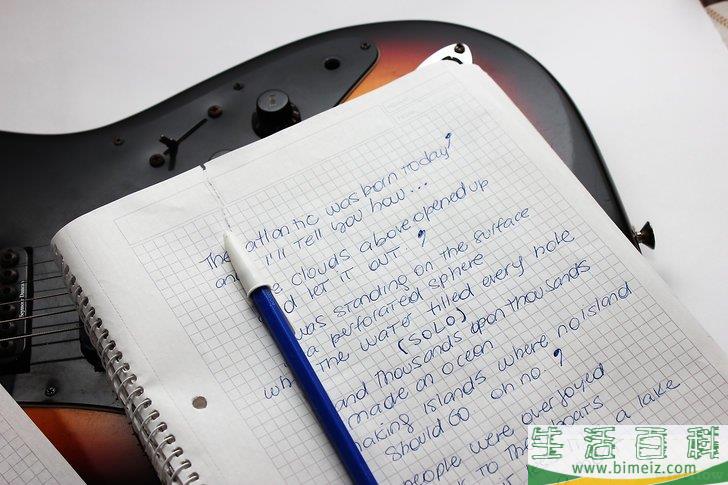 The atlantic was born today
and I'll tell you how...
e clouds above opened up
d let it out
was standing on the surface
a perforated sphere
The water filled every hole
(SOLO)
and Thousands upon thousands
made an ocean
making Islands where no island
Should Go oh no
people were overjoyed
to Their boats
a lake
生活百科
www.bimeiz.com